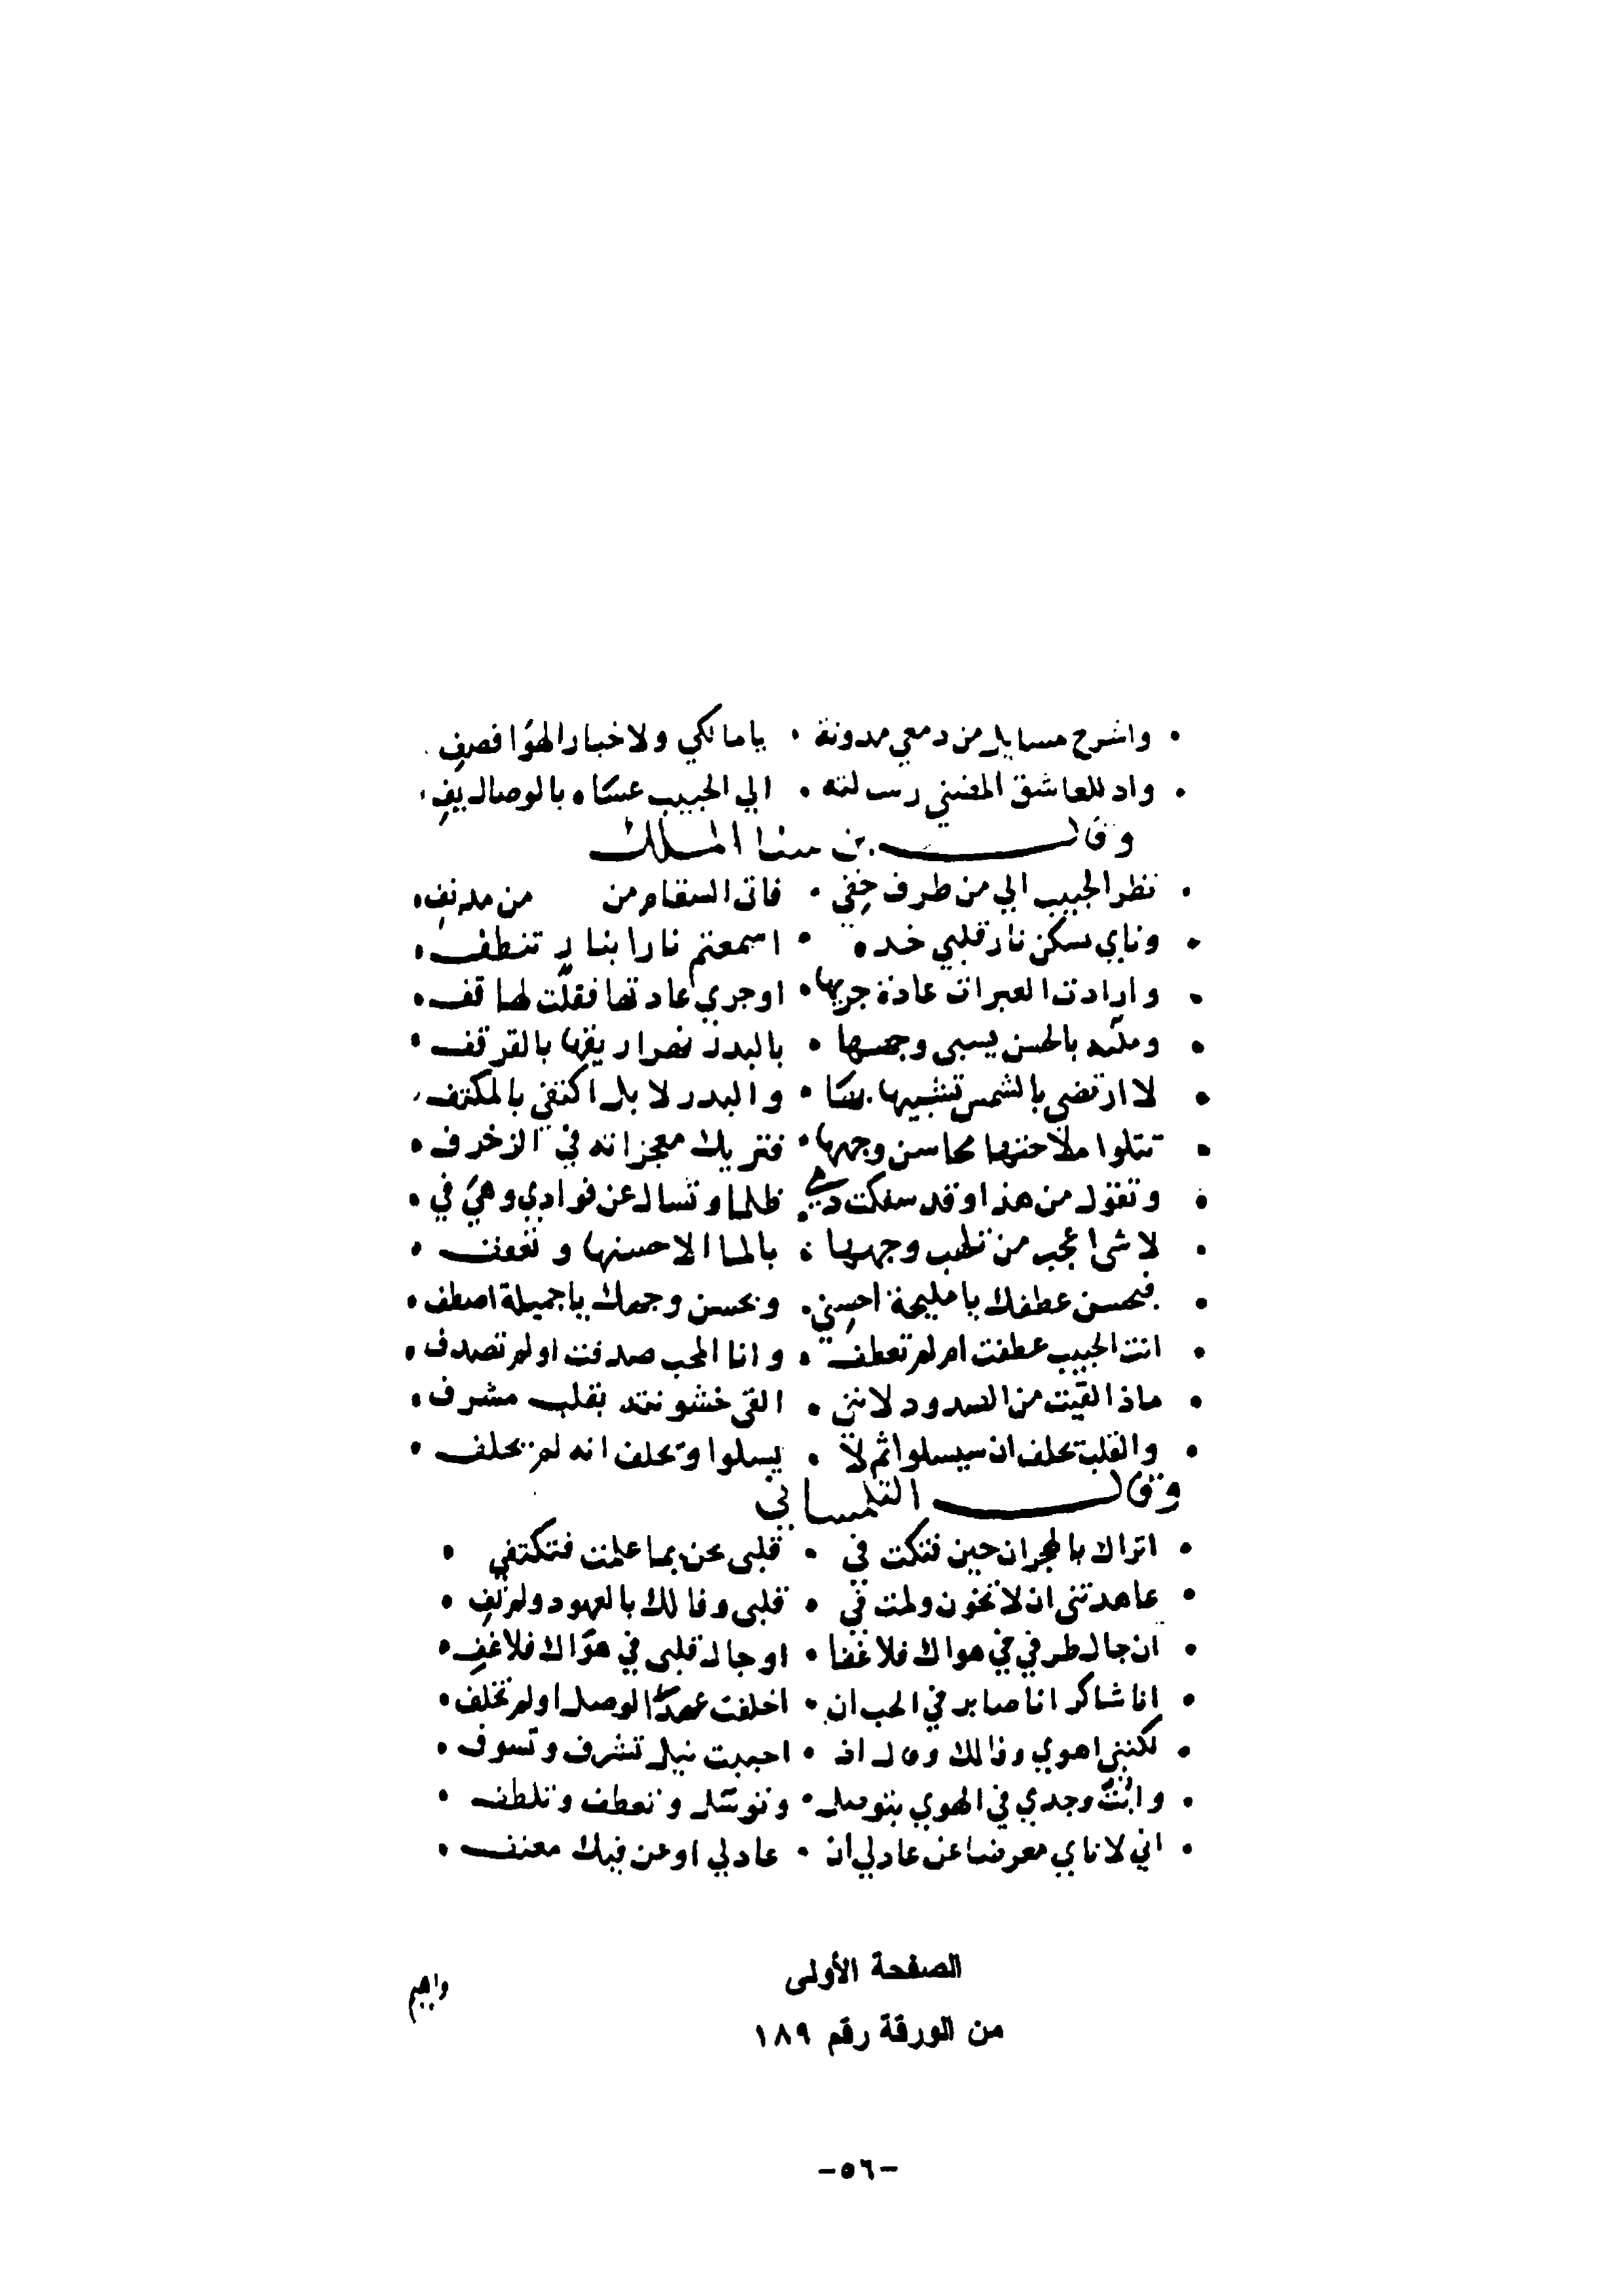 واشرح مسايل من دمعي مدونة • يا مالكي ولاخبار الهوا فصف
واد للعاشق المضني رسالته • الي الحبيب عساه بالوصال يف
وقال بن سنا الملك
نظر الحبيب الي من طرف خفي • فاتى السقام من من مدنف
وناي يسكن نار قلبي خده • اسمعتم نارا بنار تنطف
وارادت العبرات عادة جريها • او جري عادتها فقلت لها قف
بالحسن يسبى وجهها • بالبدر ريقها بالقرقف
لا ارتضى بالشمس تشبيها بها • والبدر لا بل اكتفي بالمكتف
تتلوا ملاحتها محاسن وجهها • فتريك معجزاته في الزخرف
وتقول من هذا وقد سفكت دمي • ظلما وتسال عن فوادي وهي في
لا شى اعجب من وجهها • بالما الا حسنها وتعفف
فبحسن عطفك يا مليحة احسني • وبحسن وجهك يا جميلة اصطف
انت الحبيب عطفت ام لم تعطف • وانا المحب صدفت او لم تصدف
ماذا لقيت من الصدود لانني • القى خشونته بقلب مشرف
والقلب يحلف ان سيسلوا ثم لا • يسلوا ويحلف انه لم يحلف
وقال التلمساني
اتراك بالهجران حين فتكت في • قلبى بحن بما علمت فتكتفي
عاهدتنى ان لا تخون ولمت في • قلبى وفا لك بالعهود ولم تف
ان جال طرفي في هواك فلا غفا • او حال قلبى في هواك فلا عف
انا شاكر انا صابر في الحب ان • اخلفت عهد الوصل او لم تخلف
لكننى اهوي وفا لك • احببت نيل تشرف وتسوف
وابث وجدي في الهوي بتوصل • وتوسل وتعطف وتلطف
اني لاناي معرضا عن عاذلي ان • عاذلي او عن فيك معنف
واهيم
الصفحة الأولى
من الورقة رقم ١٨٩
-٥٦-